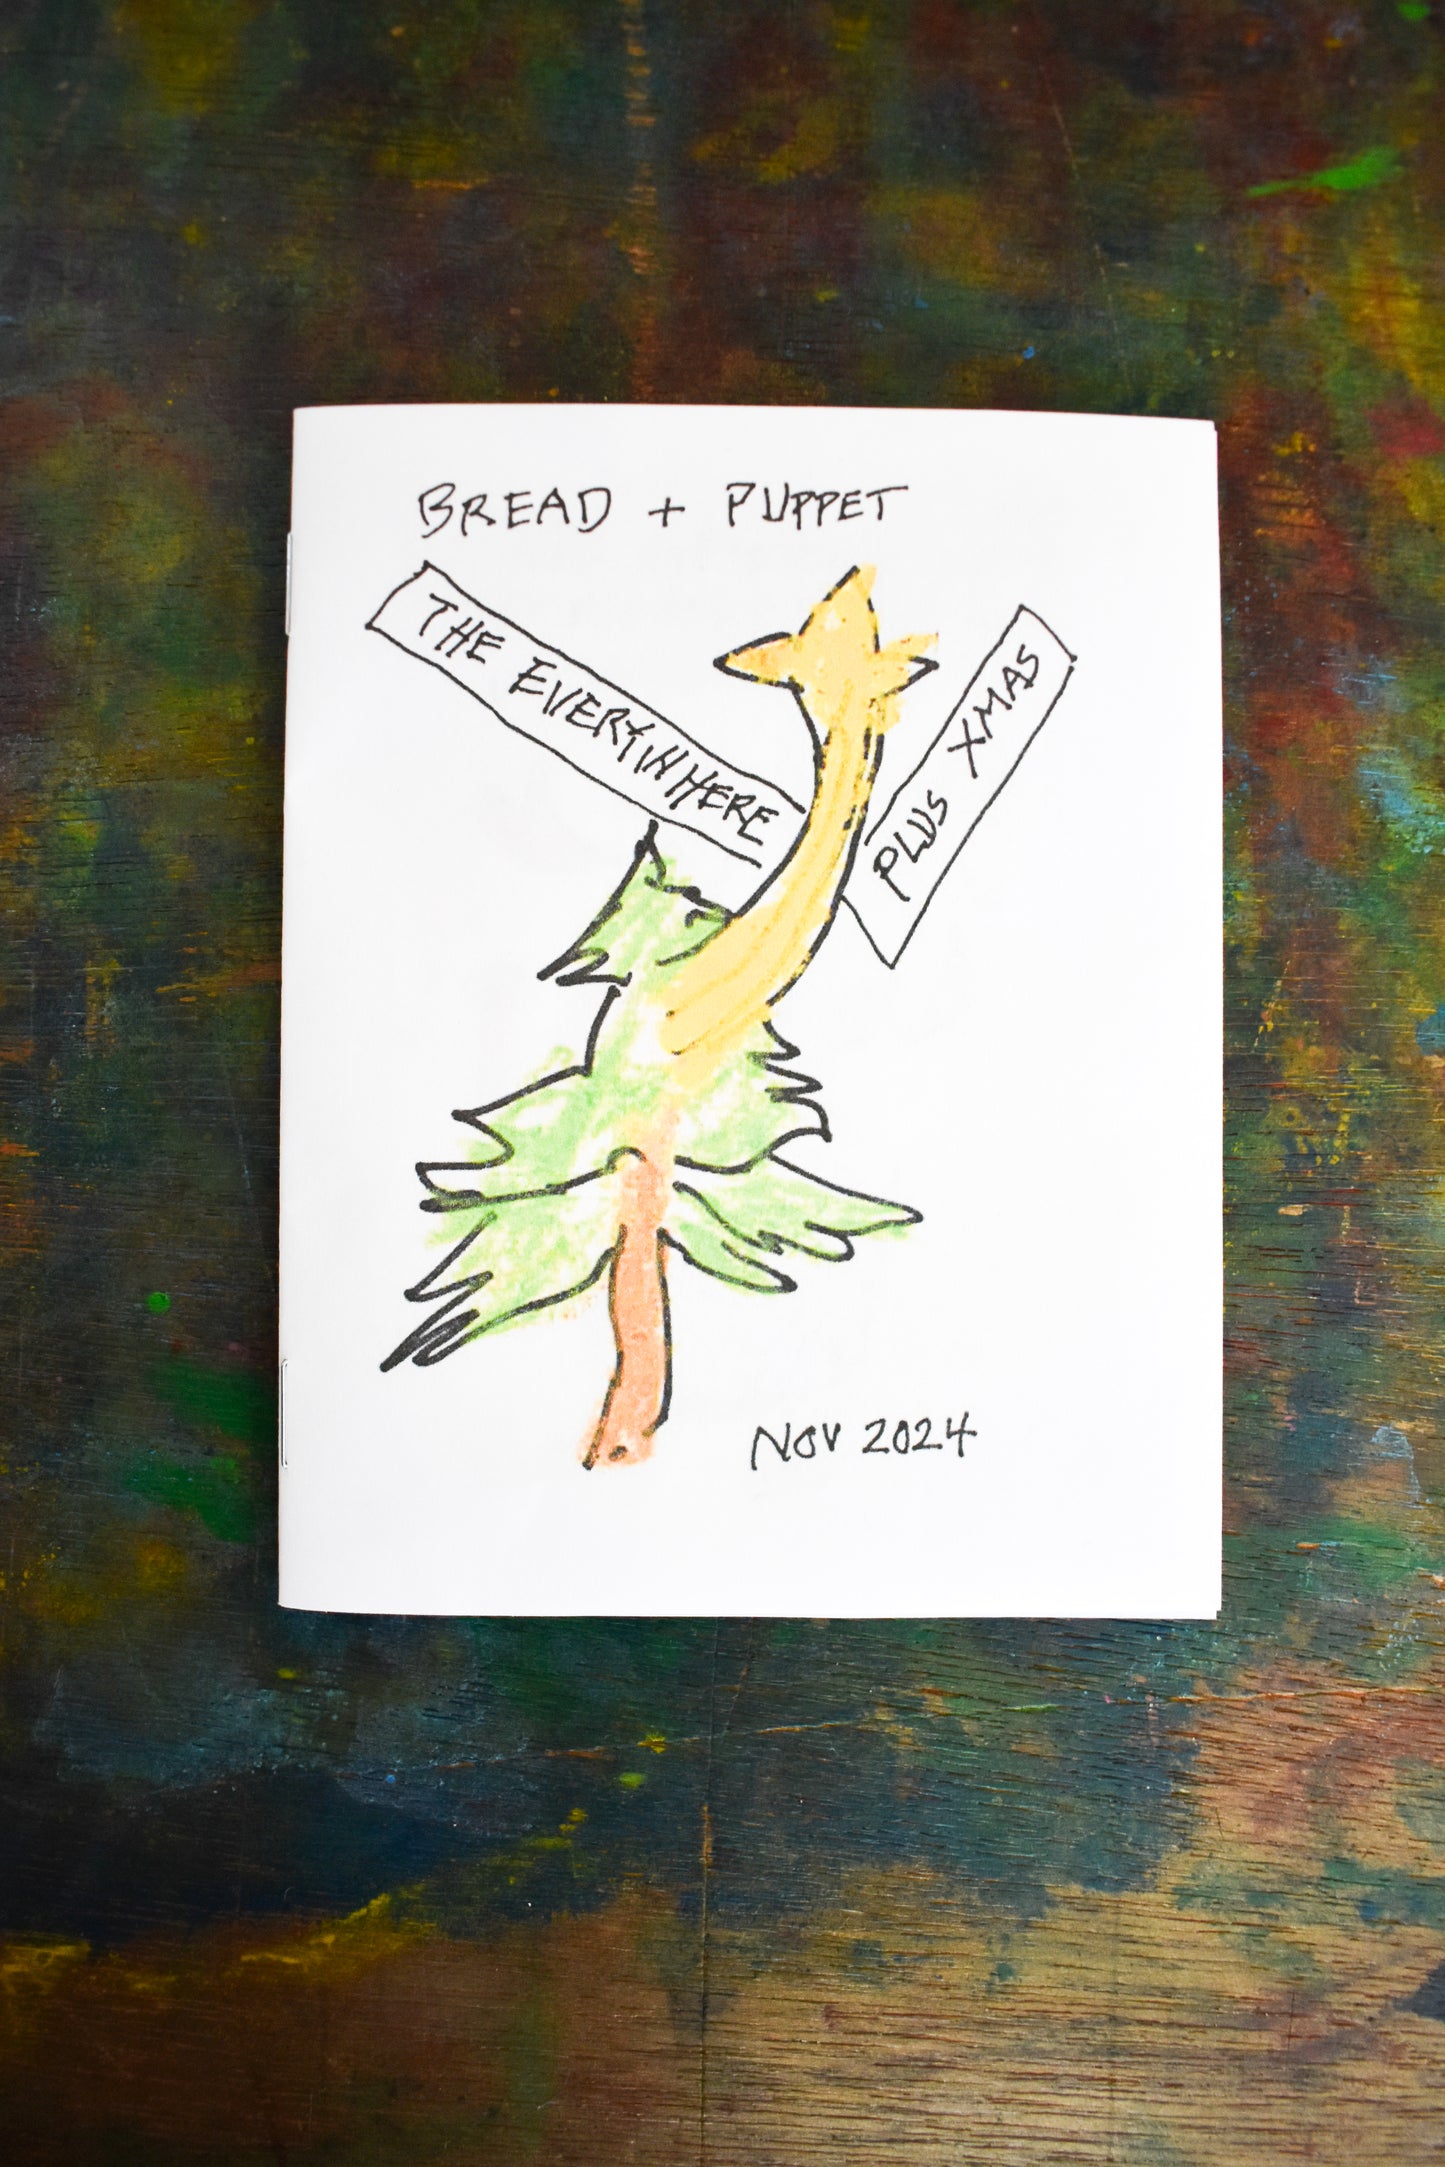 BREAD + PUPPET
THE EVERYWHERE
PLUS XMAS
NOV 2024